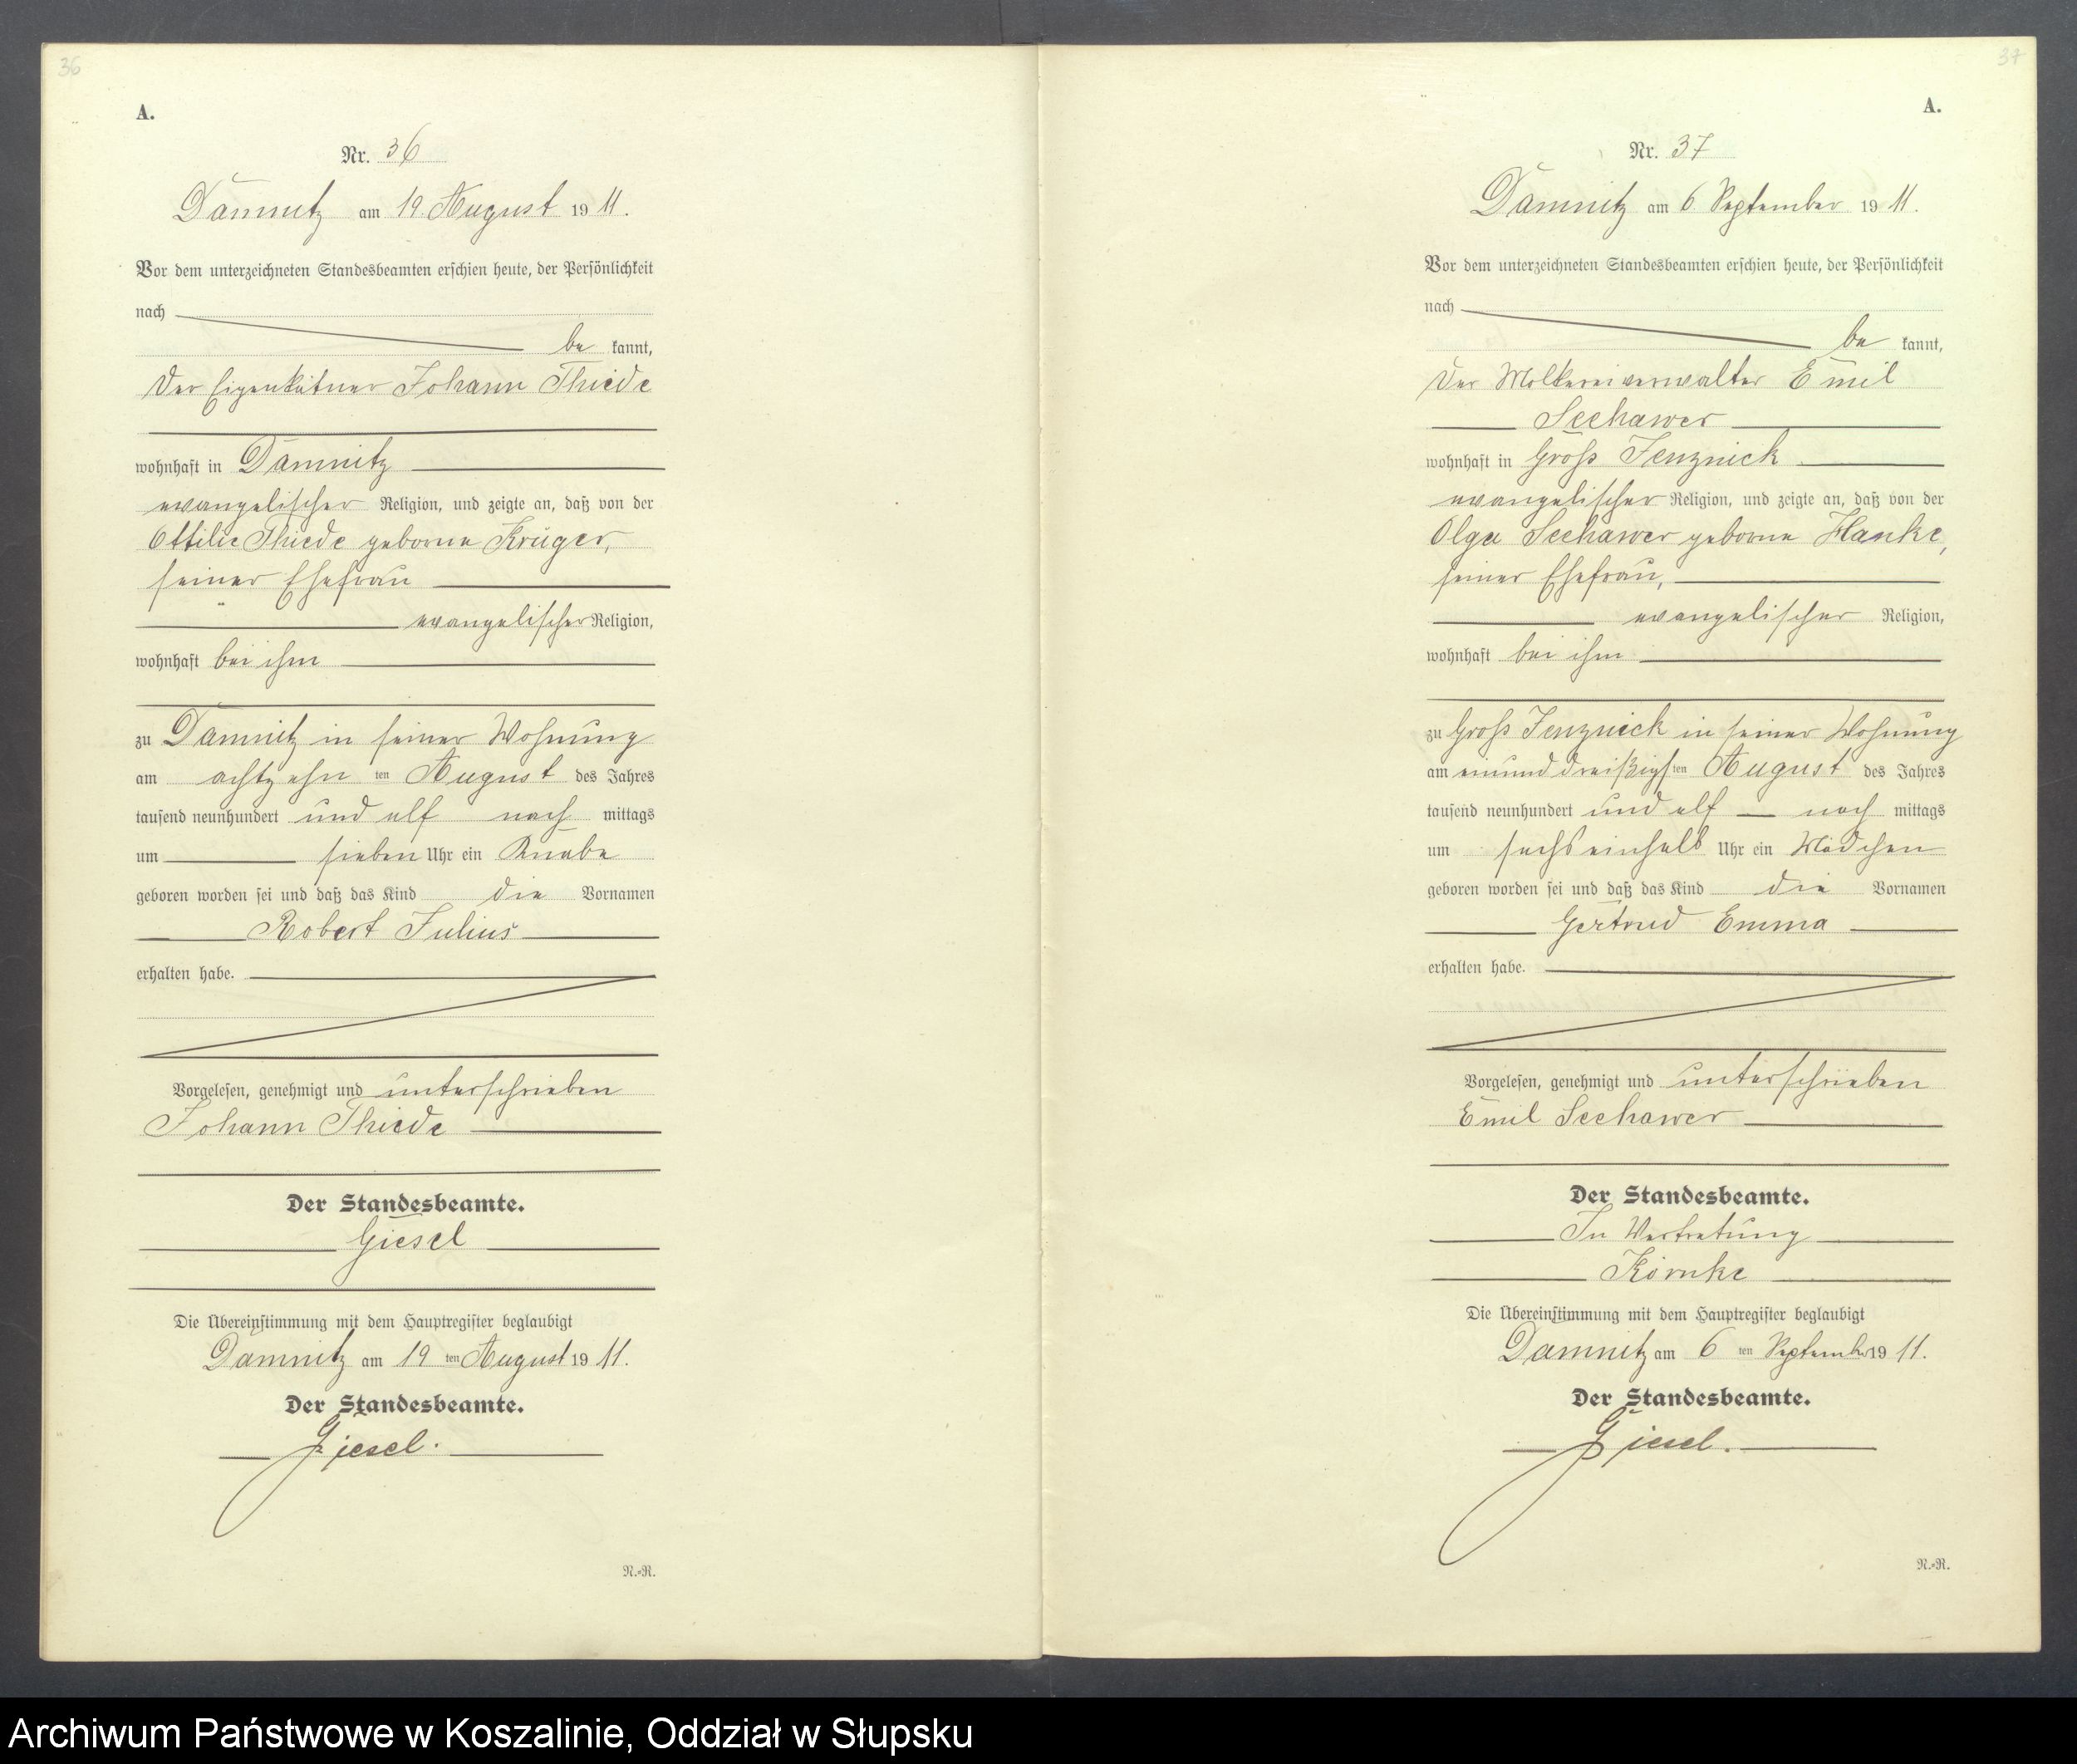 36
A.
Nr. 36
Damnitz am 19. August 1911.
Vor dem unterzeichneten Standesbeamten erschien heute, der Persönlichkeit
nach
be kannt,
Der Eigenkätner Johann Thiede
wohnhaft in Damnitz
evangelischer Religion, und zeigte an, daß von der
Ottilie Thiede geborne Krüger,
seiner Ehefrau
evangelischer Religion,
wohnhaft bei ihm
zu Damnitz in seiner Wohnung
am achtzehn ten August des Jahres
tausend neunhundert und elf nach mittags
um sieben Uhr ein Knabe
geboren worden sei und daß das Kind die Vornamen
Robert Julius
erhalten habe.
Vorgelesen, genehmigt und unterschrieben
Johann Thiede
Der Standesbeamte.
Giesel
Die Übereinstimmung mit dem Hauptregister beglaubigt
Damnitz am 19 ten August 1911.
Der Standesbeamte.
Giesel.
N.=R.
37
A.
Nr. 37
Damnitz am 6. September 1911.
Vor dem unterzeichneten Standesbeamten erschien heute, der Persönlichkeit
nach
be kannt,
Der Molkereiverwalter Emil
Seehawer
wohnhaft in Groß Jenznick
evangelischer Religion, und zeigte an, daß von der
Olga Seehawer geborne Hanke,
seiner Ehefrau,
evangelischer Religion,
wohnhaft bei ihm
zu Groß Jenznick in seiner Wohnung
am einunddreißigs ten August des Jahres
tausend neunhundert und elf nach mittags
um sechseinhalb Uhr ein Mädchen
geboren worden sei und daß das Kind die Vornamen
Gertrud Emma
erhalten habe.
Vorgelesen, genehmigt und unterschrieben
Emil Seehawer
Der Standesbeamte.
In Vertretung
Körnke
Die Übereinstimmung mit dem Hauptregister beglaubigt
Damnitz am 6 ten September 1911.
Der Standesbeamte.
Giesel.
N.=R.
Archiwum Państwowe w Koszalinie, Oddział w Słupsku